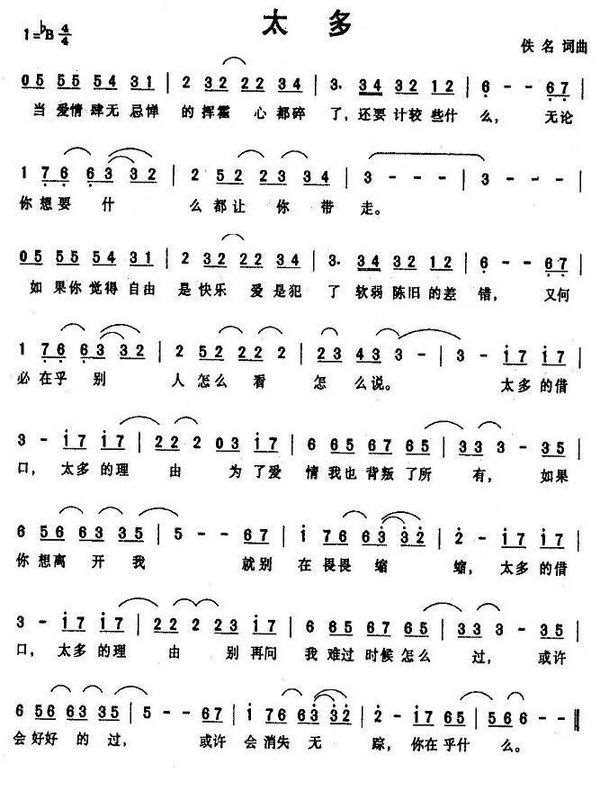 太 多
1=♭B 4/4
佚 名 词曲
05 55 54 31 | 2 32 22 34 | 3. 34 32 12 | 6 - - 67 |
当 爱情 肆无 忌惮 的 挥霍 心 都碎 了，还要 计较 些什 么， 无论
1 76 63 32 | 2 52 23 34 | 3 - - - | 3 - - - |
你 想要 什 么 都让 你 带 走。
05 55 54 31 | 2 32 22 34 | 3. 34 32 12 | 6 - - 67 |
如 果你 觉得 自由 是 快乐 爱 是犯 了 软弱 陈旧 的差 错， 又何
1 76 63 32 | 2 52 22 2 | 23 43 3 - | 3 - i7 i7 |
必 在乎 别 人 怎么 看 怎 么说。 太多 的借
3 - i7 i7 | 22 2 03 i7 | 6 65 67 65 | 33 3 - 35 |
口， 太多 的理 由 为 了爱 情 我也 背叛 了所 有， 如果
6 56 63 35 | 5 - - 67 | i 76 63 32 | 2 - i7 i7 |
你 想离 开 我 就别 在 畏畏 缩 缩， 太多 的借
3 - i7 i7 | 22 2 23 i7 | 6 65 67 65 | 33 3 - 35 |
口， 太多 的理 由 别 再问 我 难过 时候 怎么 过， 或许
6 56 63 35 | 5 - - 67 | i 76 63 32 | 2 - i7 65 | 56 6 - - ‖
会 好好 的 过， 或许 会 消失 无 踪， 你在 乎什 么。